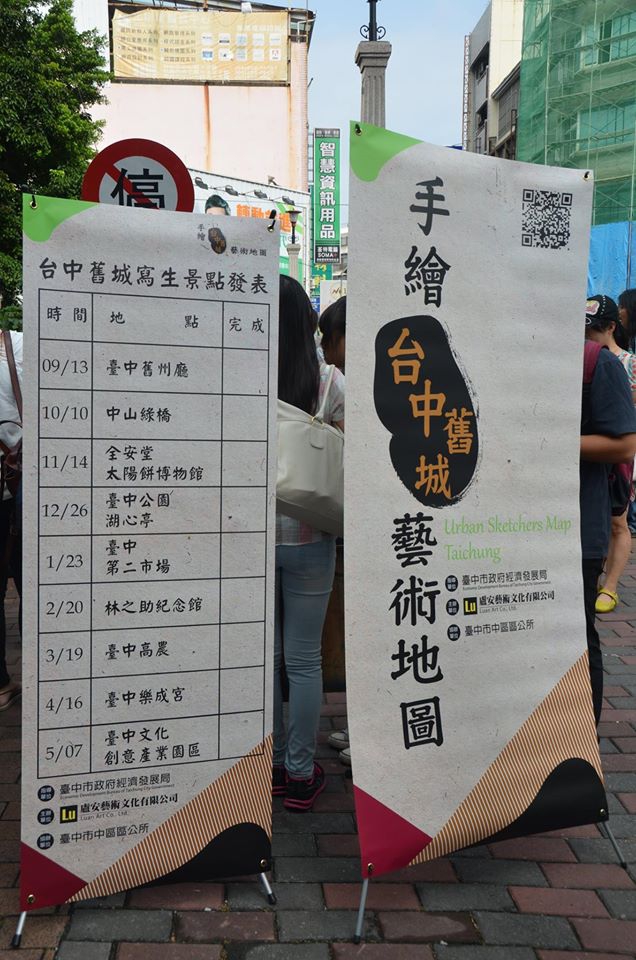 手繪
藝術地圖
台中舊城寫生景點發表
時間 地點 完成
09/13 臺中舊州廳
10/10 中山綠橋
11/14 全安堂
太陽餅博物館
12/26 臺中公園
湖心亭
1/23 臺中
第二市場
2/20 林之助紀念館
3/19 臺中高農
4/16 臺中樂成宮
5/07 臺中文化
創意產業園區
指導單位 臺中市政府經濟發展局
Economic Development Bureau of Taichung City Government
主辦單位 Lu 盧安藝術文化有限公司
Luan Art Co., Ltd.
協辦單位 臺中市中區區公所
手繪
台中舊城
藝術地圖
Urban Sketchers Map
Taichung
指導單位 臺中市政府經濟發展局
Economic Development Bureau of Taichung City Government
主辦單位 Lu 盧安藝術文化有限公司
Luan Art Co., Ltd.
協辦單位 臺中市中區區公所
停
智慧資訊用品